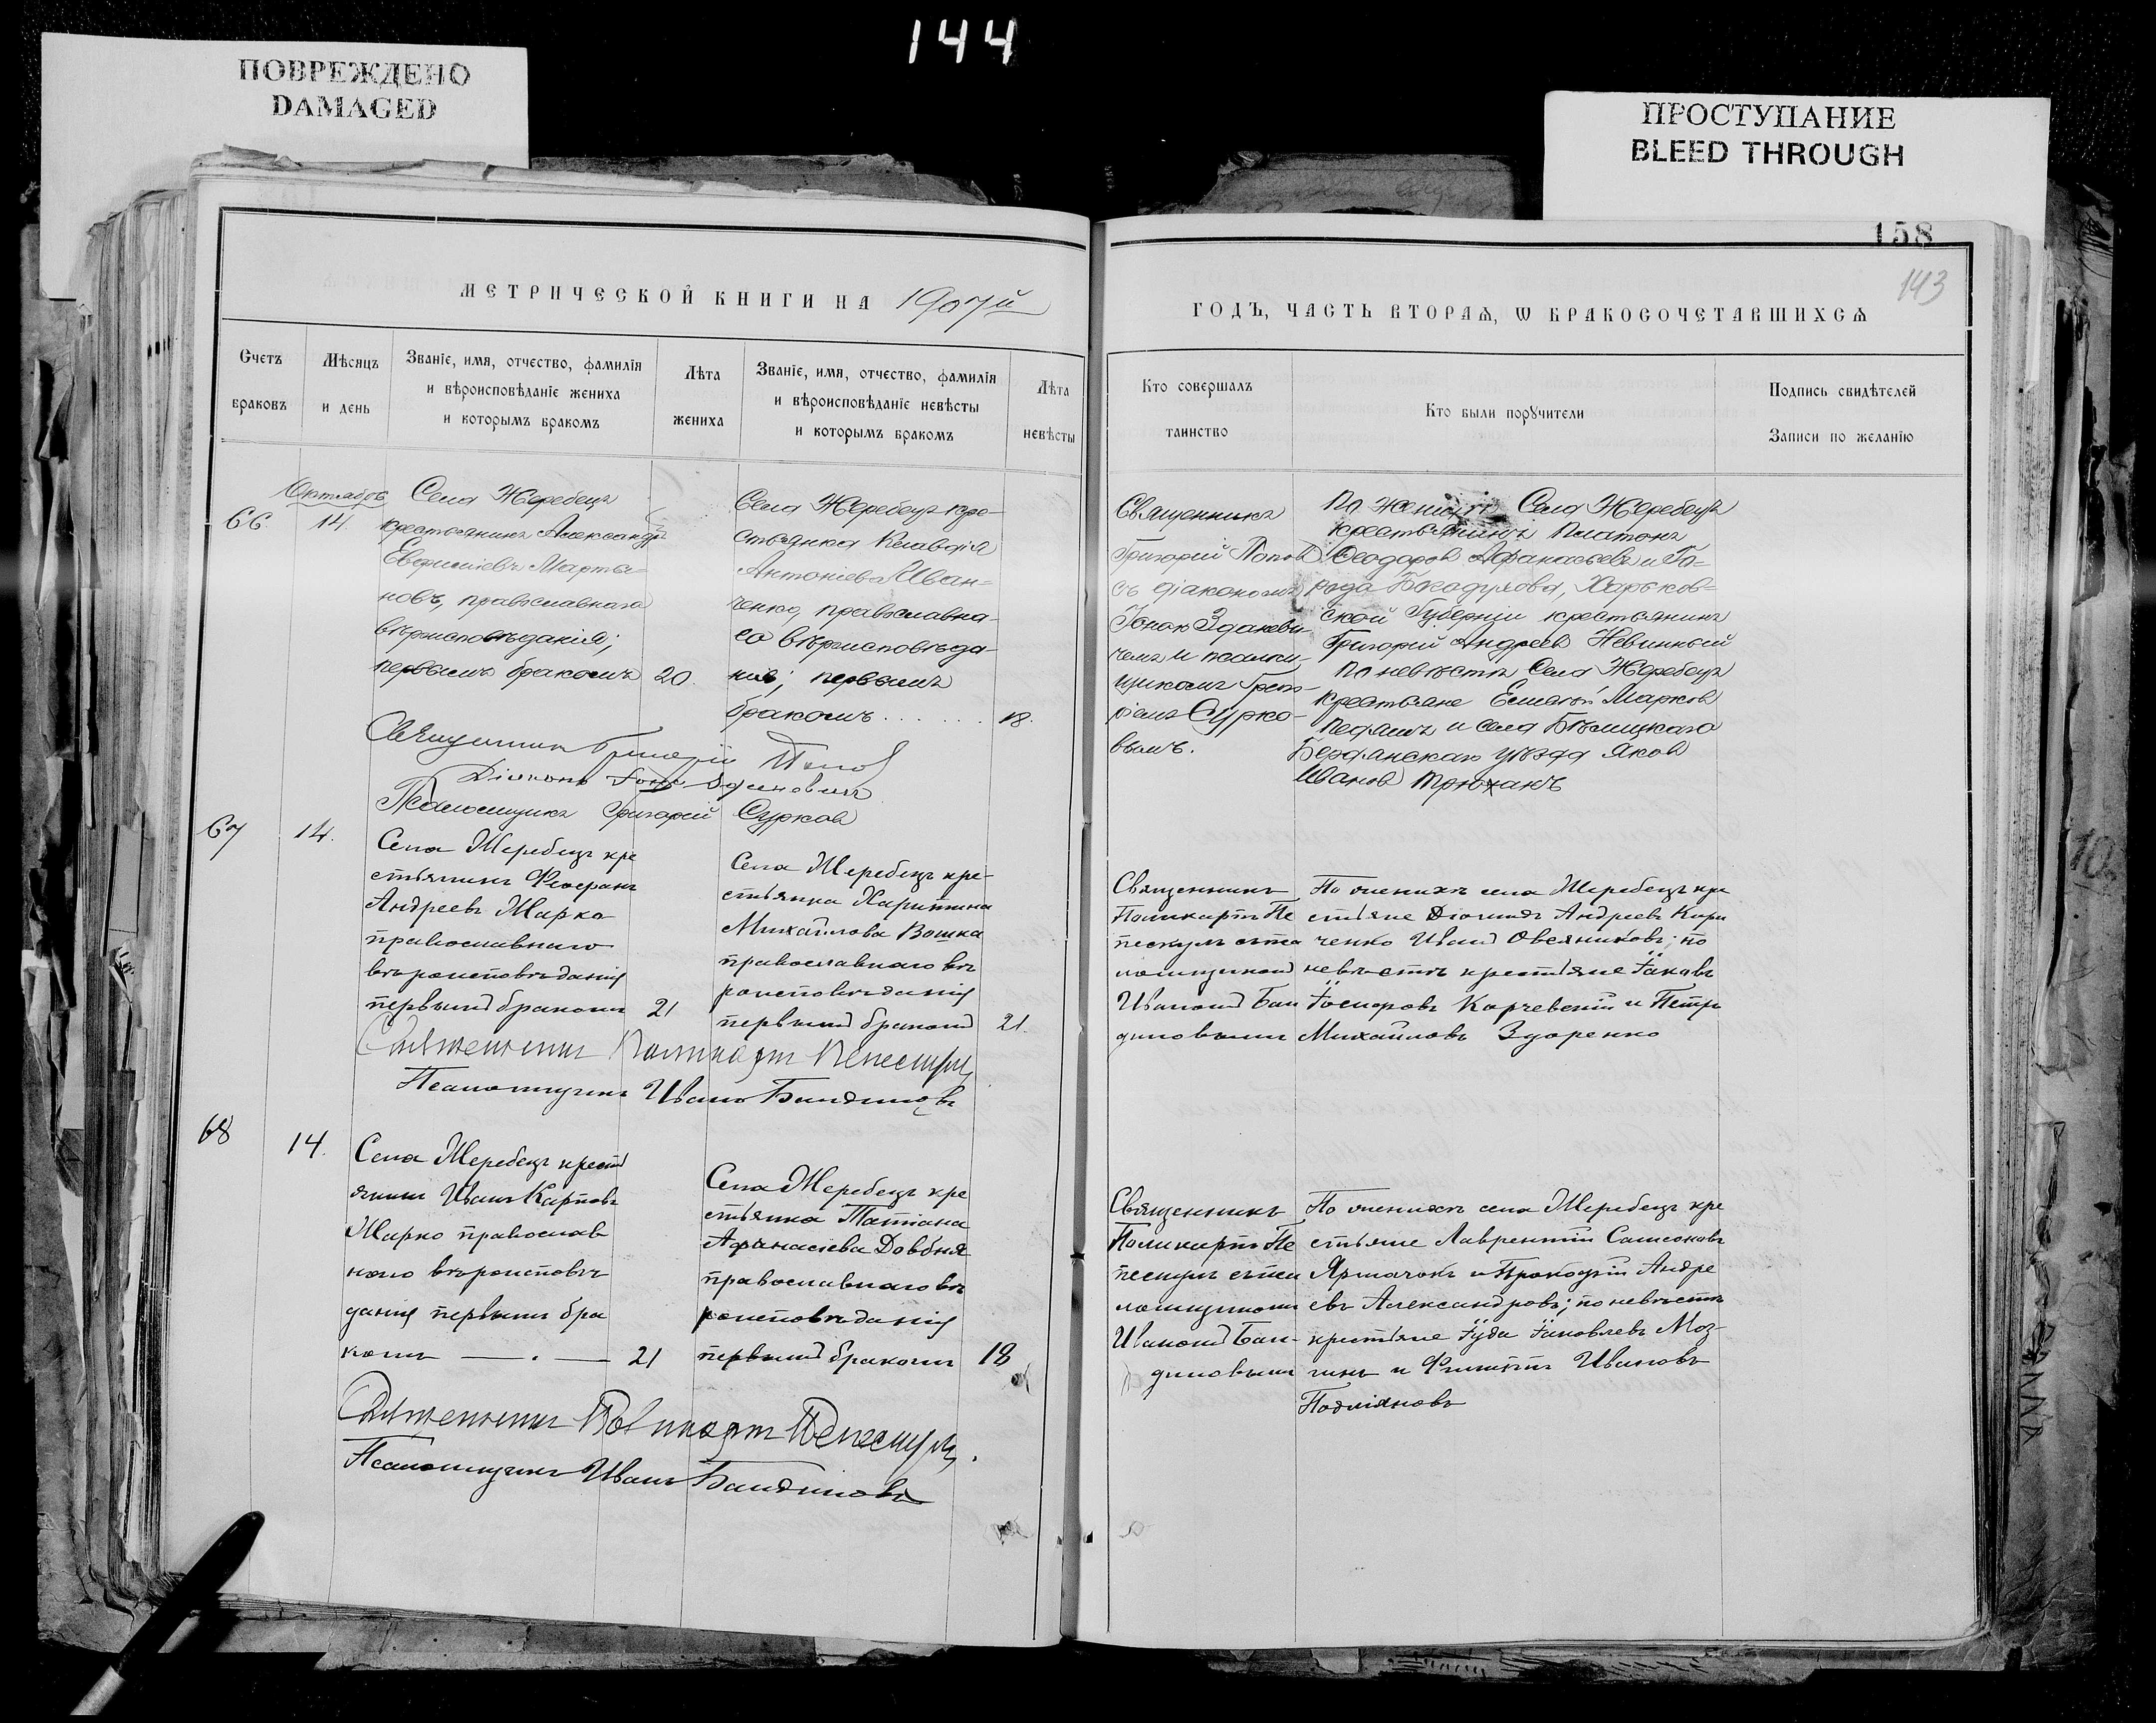 144
ПОВРЕЖДЕНО
DAMAGED
ПРОСТУПАНИЕ
BLEED THROUGH
158
143
МЕТРИЧЕСКОЙ КНИГИ НА 1907й
ГОДЪ, ЧАСТЬ ВТОРАѦ, Ѡ БРАКОСОЧЕТАВШИХСѦ
Счетъ
браковъ
Мѣсяцъ
и день
Званіе, имя, отчество, фамилія
и вѣроисповѣданіе жениха
и которымъ бракомъ
Лѣта
жениха
Званіе, имя, отчество, фамилія
и вѣроисповѣданіе невѣсты
и которымъ бракомъ
Лѣта
невѣсты
Кто совершалъ
таинство
Кто были поручители
Подпись свидѣтелей
Записи по желанію
66.
Октябрь
14.
Села Жеребецъ
крестьянинъ Александръ
Евфиміевъ Марты-
новъ, православнаго
вѣроисповѣданія;
первымъ бракомъ
20.
Села Жеребецъ кре-
стьянка Клавдія
Антоніева Иван-
ченко, православна-
го вѣроисповѣда-
нія; первымъ
бракомъ . . . . . .
18.
Священникъ
Григорій Попов
съ діакономъ
Іоною Зданеви-
чемъ и псалом-
щикомъ Григо-
ріемъ Сурко-
вымъ.
По женихѣ Села Жеребецъ
крестьянинъ Платонъ
Ѳеодоров Афанасьевъ и Го-
рода Богодухова, Харьков-
ской Губерніи крестьянинъ
Григорій Андреев Невинный
По невѣстѣ Села Жеребецъ
крестьяне Марков
и села Бѣлицкаго
Бердянскаго уѣзда Яков
Иванов Трюханъ
Священникъ Григорій Попов
Діаконъ Іона Здановичъ
Псаломщикъ Григорій Сурков
67
14.
Села Жеребецъ кре
стьянинъ Феофанъ
Андреевъ Марко
православнаго
вѣроисповѣданія
первымъ бракомъ
21
Села Жеребецъ кре-
стьянка Харитина
Михайлова Вошка
православнаго вѣ
роисповѣданія
первымъ бракомъ
21.
Священникъ
Поликарпъ Пе
пескулъ съ пса
ломщикомъ
Иваномъ Бан
диновымъ
По женихѣ села Жеребецъ кре
стьяне Діомидъ Андреевъ Кири
ченко Иван Овсяниковъ; по
невѣстѣ крестьяне Іаковъ
Іосифовъ Корчевскій и Петръ
Михайловъ Здоренко
Священникъ Поликарпъ Пепескулъ
Псаломщикъ Иванъ Бандиновъ
68
14.
Села Жеребецъ крест
янинъ Иванъ Карповъ
Марко православ
наго вѣроисповѣ
данія первымъ бра
комъ — . —
21
Села Жеребецъ кре
стьянка Татіана
Афанасіева Довбня
православнаго вѣ
роисповѣданія
первымъ бракомъ
18
Священникъ
Поликарпъ Пе
пескулъ съ пса
ломщикомъ
Иваномъ Бан-
диновымъ
По женихѣ села Жеребецъ кре
стьяне Лаврентій Самсоновъ
Ярмачокъ и Прокофій Андре
евъ Александровъ; по невѣстѣ
крестьяне Іуда Іаковлевъ Моз-
гинъ и Филиппъ Ивановъ
Подліяновъ
Священникъ Поликарпъ Пепескулъ.
Псаломщикъ Иванъ Бандиновъ